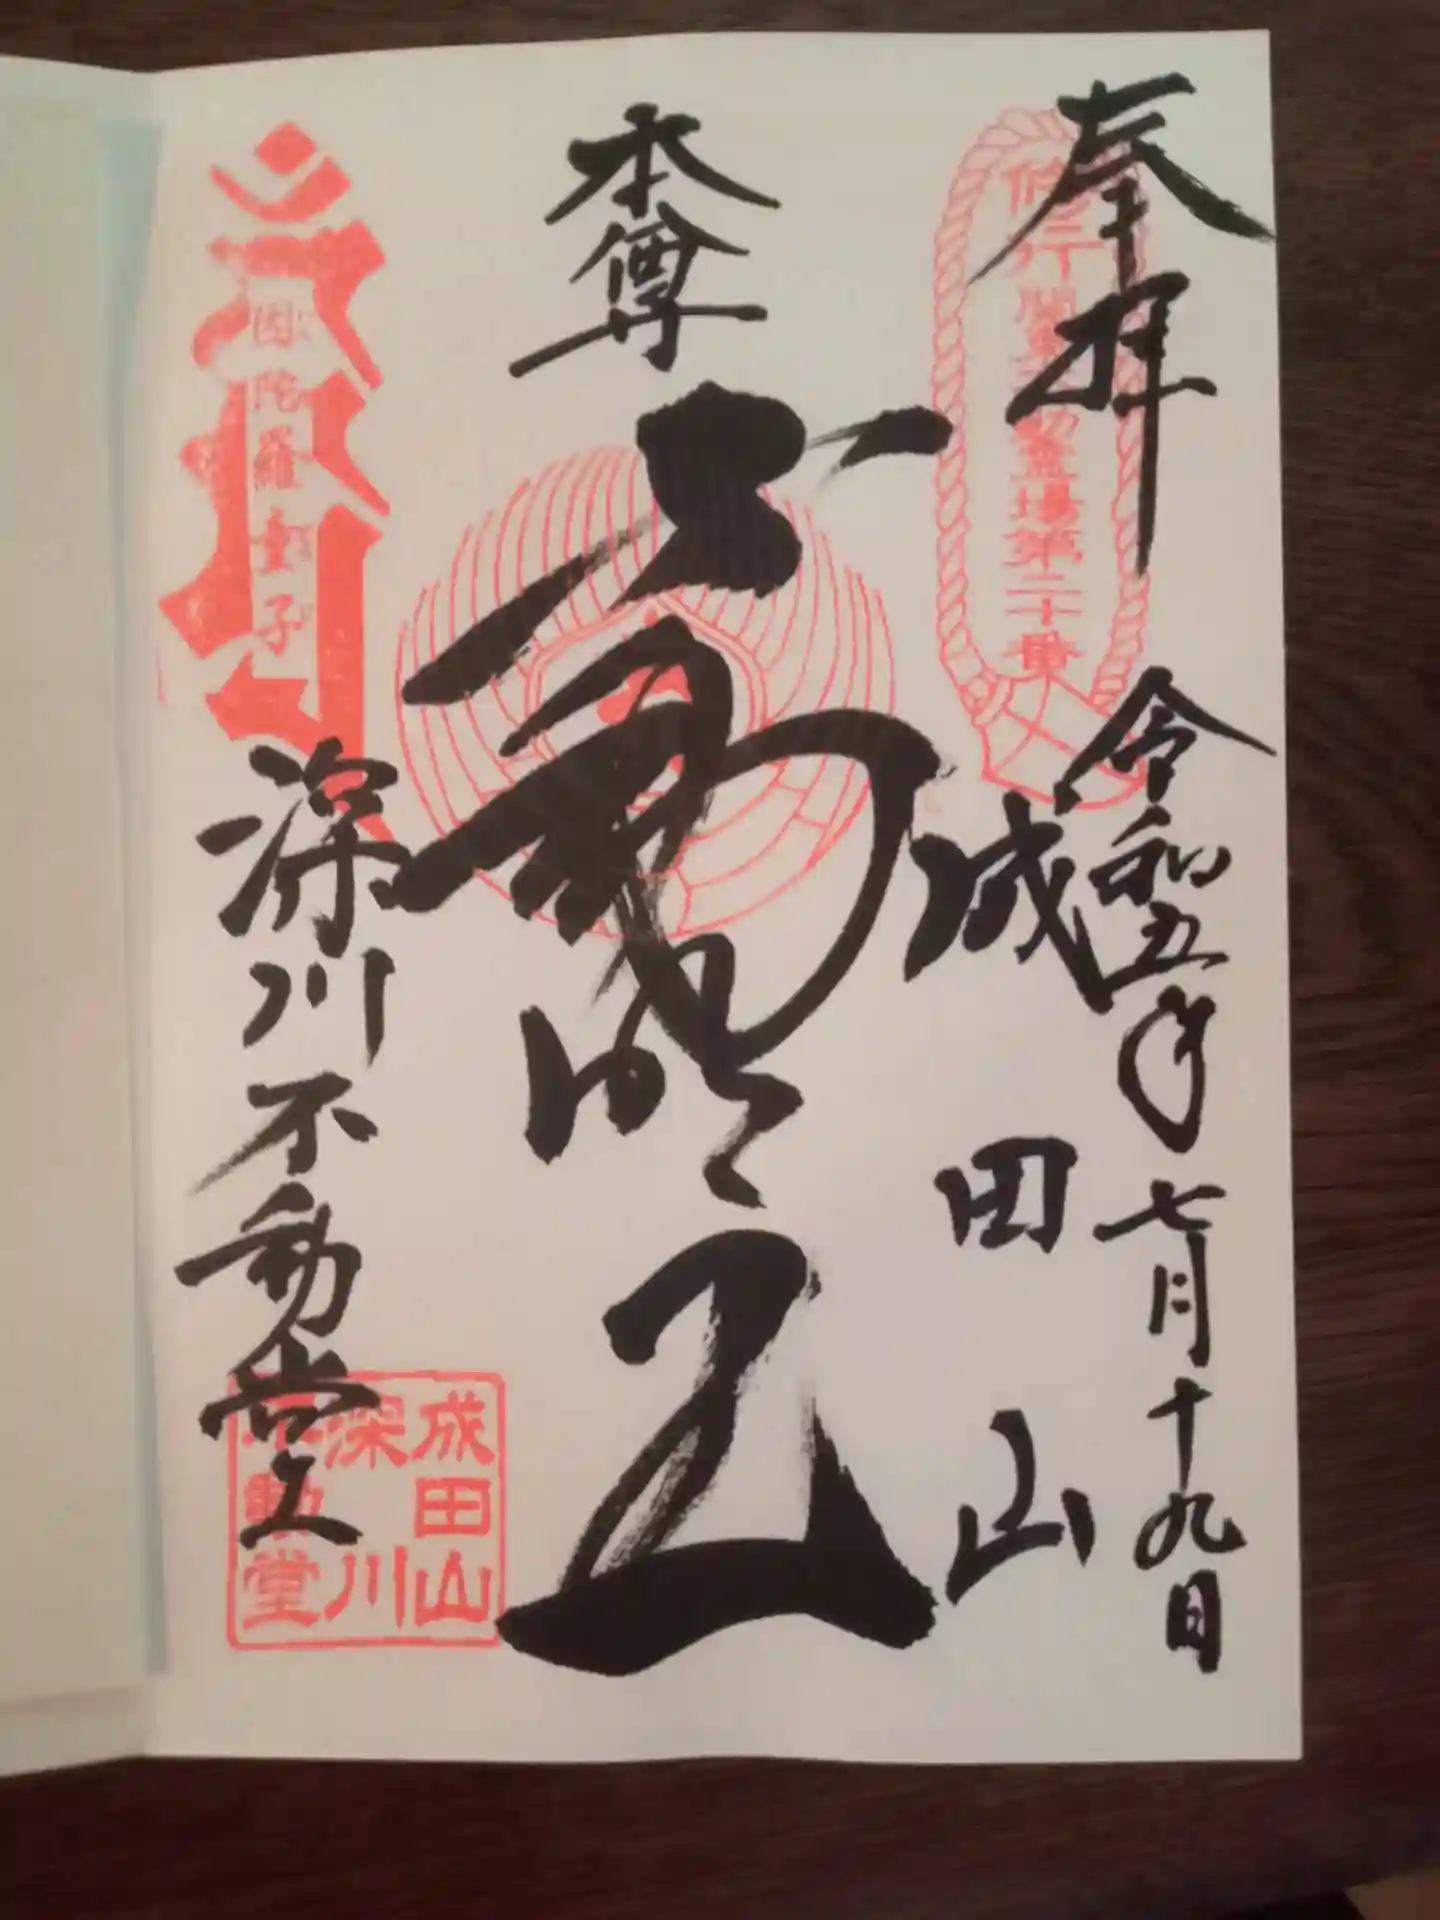 奉拝
令和五年七月十九日
成田山
本尊
不動明王
深川不動堂
霊場第二十番
因陀羅童子
成田山
深川
不動堂